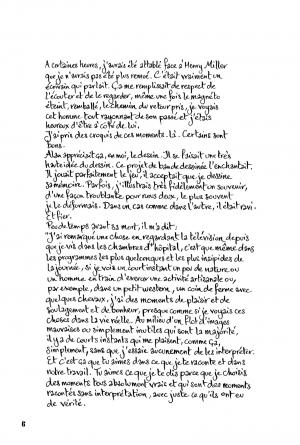 A certaines heures, j'aurais été attablé face à Henry Miller
que je n'aurais pas été plus remué. C'était vraiment un
écrivain qui parlait. Ça me remplissait de respect de
l'écouter et de le regarder, même une fois le magnéto
éteint, remballé, le chemin du retour pris, je voyais
cet homme tout rayonnant de son passé et j'étais
heureux d'être à côté de lui.
J'ai pris des croquis de ces moments-là. Certains sont
bons.
Alan appréciait ça, en moi, le dessin. Il se faisait une très
haute idée du dessin. Ce projet de bande dessinée l'enchantait.
Il jouait parfaitement le jeu, il acceptait que je dessine
sa mémoire. Parfois, j'illustrais très fidèlement un souvenir,
d'une façon troublante pour nous deux, le plus souvent
je le déformais. Dans un cas comme dans l'autre, il était ravi.
Et fier.
Peu de temps avant sa mort, il m'a dit :
"J'ai remarqué une chose en regardant la télévision, depuis
que je vis dans les chambres d'hôpital, c'est que même dans
les programmes les plus quelconques et les plus insipides de
la journée, si je vois un court instant un peu de nature ou
un homme en train d'exercer une activité artisanale ou,
par exemple, dans un petit western, un coin de ferme avec
quelques chevaux, j'ai des moments de plaisir et de
soulagement et de bonheur, presque comme si je voyais ces
choses dans la vie réelle. Au milieu d'un flot d'images
mauvaises ou simplement inutiles qui sont la majorité,
il y a de courts instants qui me plaisent, comme ça,
simplement, sans que j'essaie aucunement de les interpréter.
Et c'est ça que tu aimes dans ce que je te raconte et dans
notre travail. Tu aimes ce que je te dis parce que je choisis
des moments tous absolument vrais et qui sont des moments
racontés sans interprétation, avec juste ce qu'ils ont eu
de vérité.
6